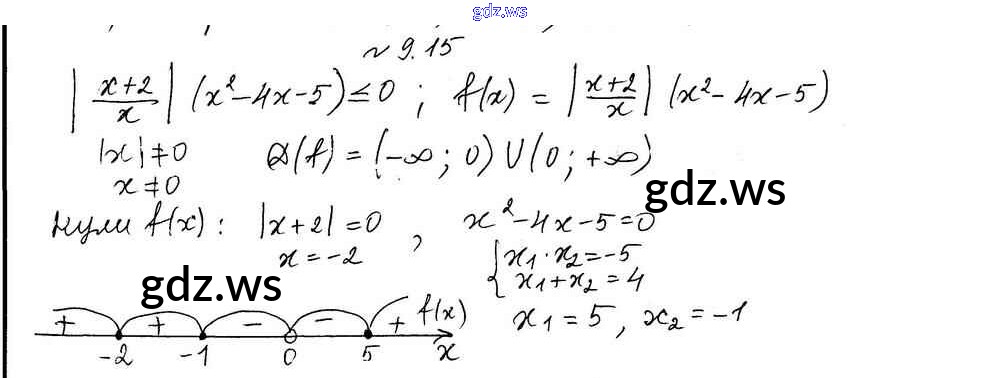 gdz.ws
~ 9.15
|x+2/x| (x²-4x-5)≤0 ; f(x) = |x+2/x| (x²-4x-5)
|x|≠0 D(f) = (-∞; 0) U (0; +∞)
x≠0
gdz.ws
Нули f(x): |x+2|=0 , x²-4x-5=0
x=-2 { x₁·x₂=-5
x₁+x₂=4
gdz.ws
+ + - - + f(x) x₁=5, x₂=-1
-2 -1 0 5 x